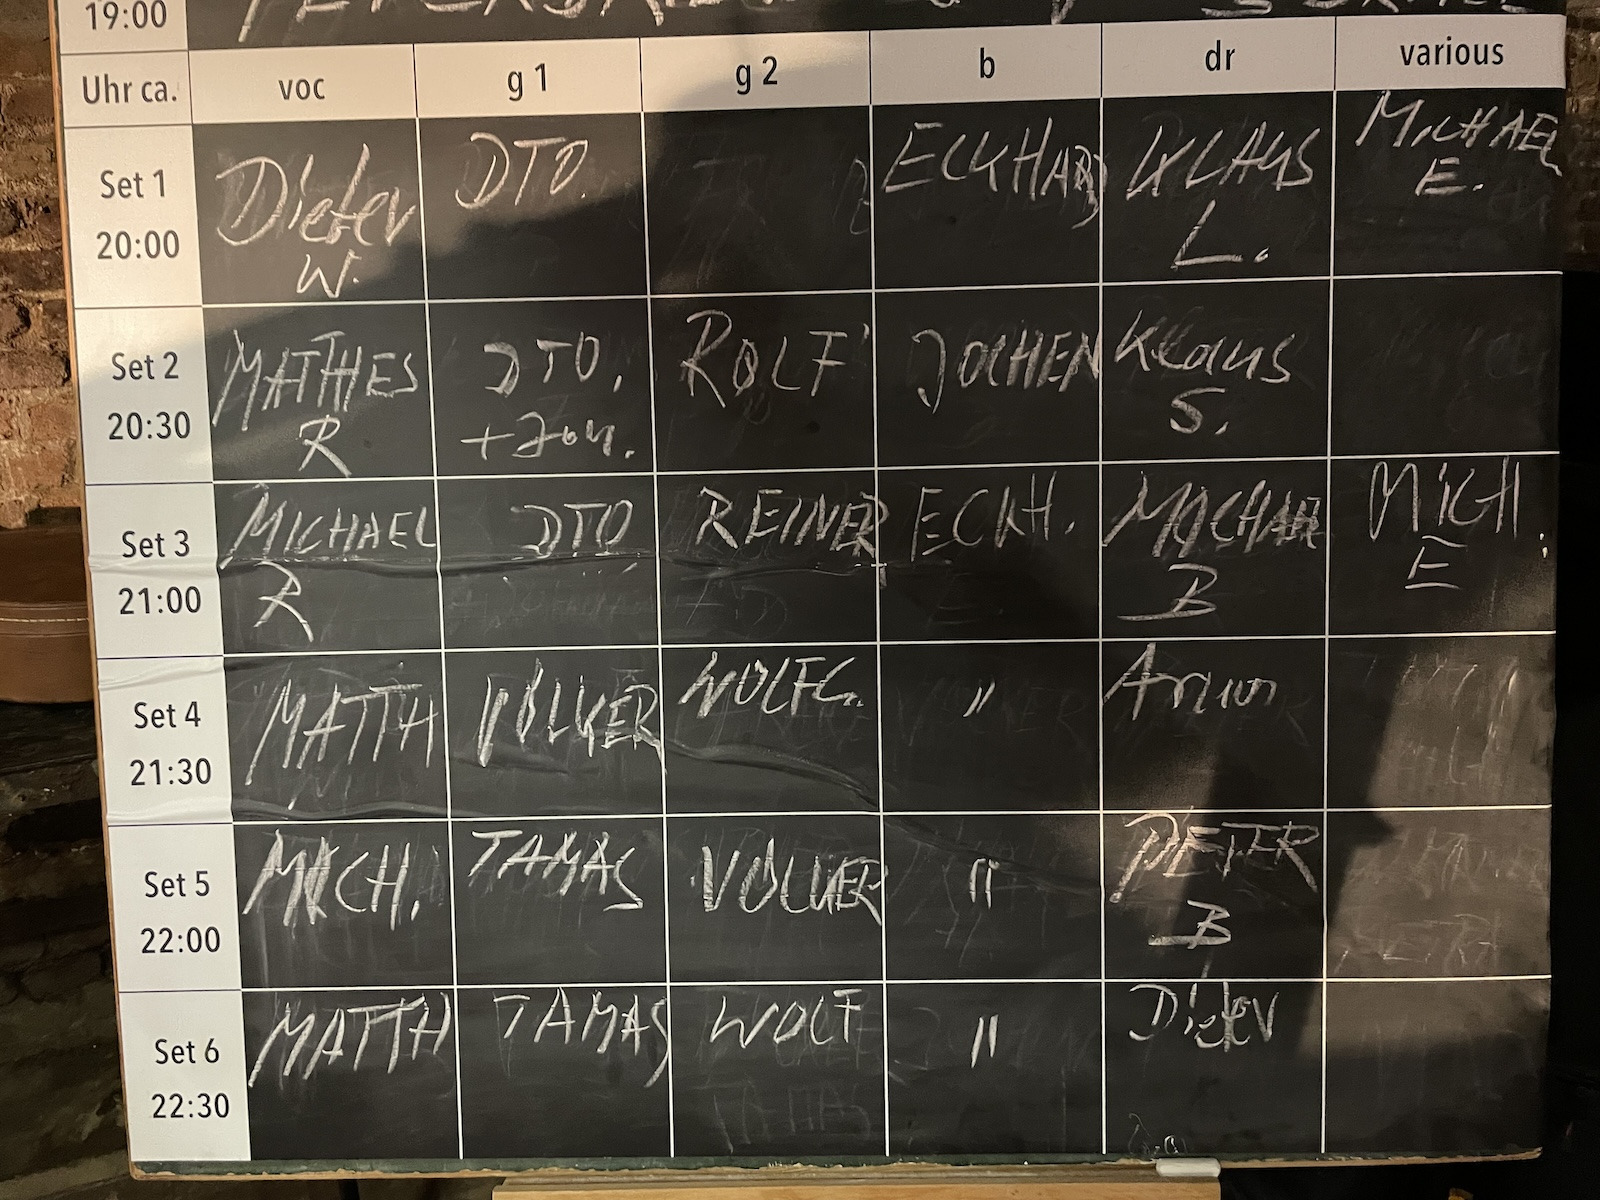 19:00
Uhr ca. voc g 1 g 2 b dr various
Set 1 Dieter DTO. ECKHARD KLAUS MICHAEL
20:00 W. L. E.
Set 2 MATTHES DTO. ROLF JOCHEN Klaus
20:30 R S.
Set 3 MICHAEL DTO REINER ECKH. MICHAEL MICH.
21:00 R B E
Set 4 MATTH VOLKER WOLFG. " Armin
21:30
Set 5 MICH. TAMAS VOLKER " PETER
22:00 B
Set 6 MATTH TAMAS WOLF " Dieter
22:30